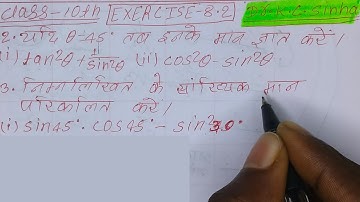 Class-10th EXERCISE-8.2
2. यदि θ-45° तब इनके मान ज्ञात करें।
(i) tan²θ + 1/sin²θ (ii) cos²θ - sin²θ
3. निम्नलिखित के सांख्यिक मान
परिकलित करें।
(i) sin45°. cos45° - sin²30°